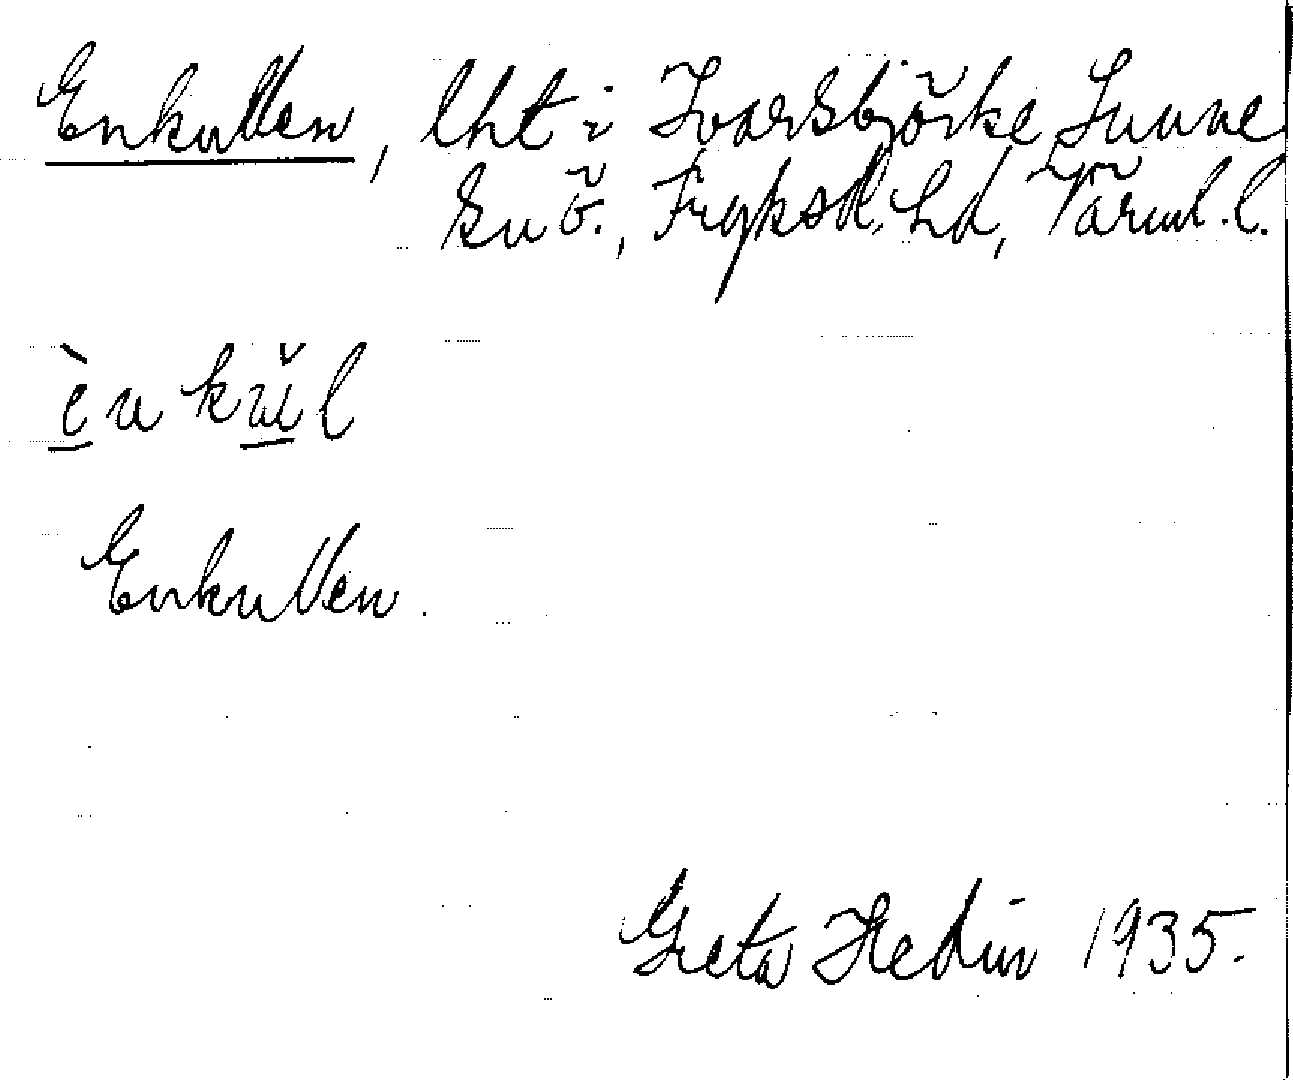 Enkullen, lht i Ivarsbjörke Sunne
sn Ö., Fryksd. hd, Värml. l.
è n k ŭ l
Enkullen.
Greta Hedin 1935.